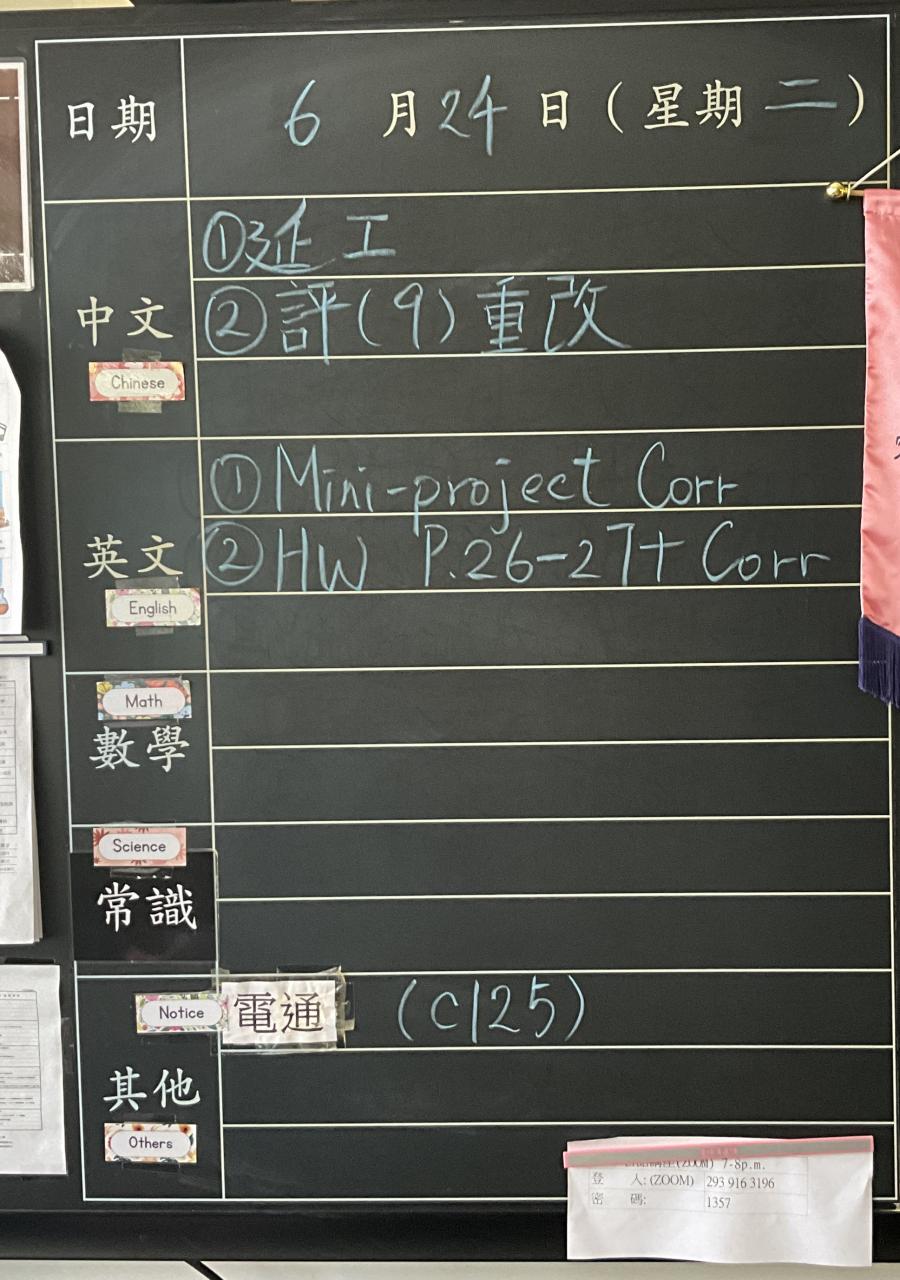 日期 6 月 24 日 ( 星期 二 )
①延工
②評(9) 重改
中文
Chinese
①Mini-project Corr
②HW P.26-27+ Corr
英文
English
Math
數學
Science
常識
Notice 電通 (C125)
其他
Others
(ZOOM) 7-8p.m.
登 入: (ZOOM) 293 916 3196
密 碼: 1357